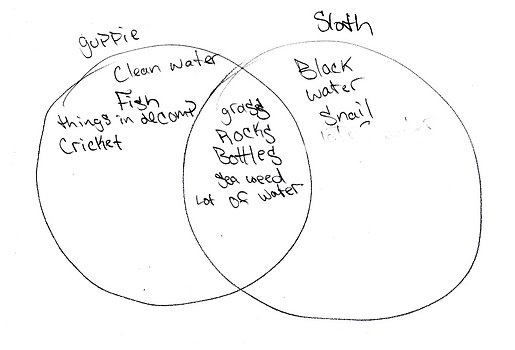 guppie
Sloth
Clean water
Fish
things in decomp
Cricket
grass
Rocks
Bottles
Sea weed
Lot of water
Black
water
Snail